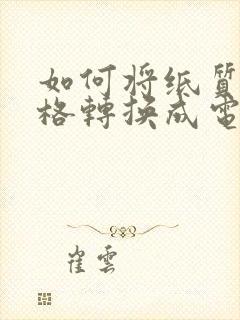 如何将纸質
格轉换成電
崔雲